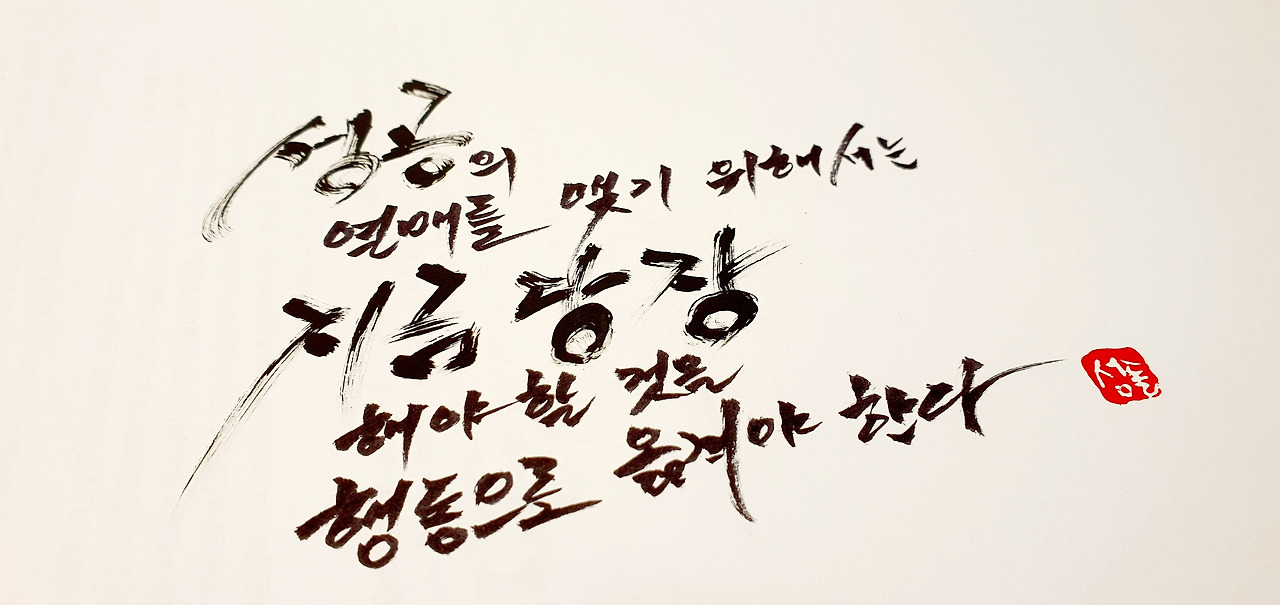 성공의
열매를 맺기 위해서는
지금 당장
해야 할 것을
행동으로 옮겨야 한다